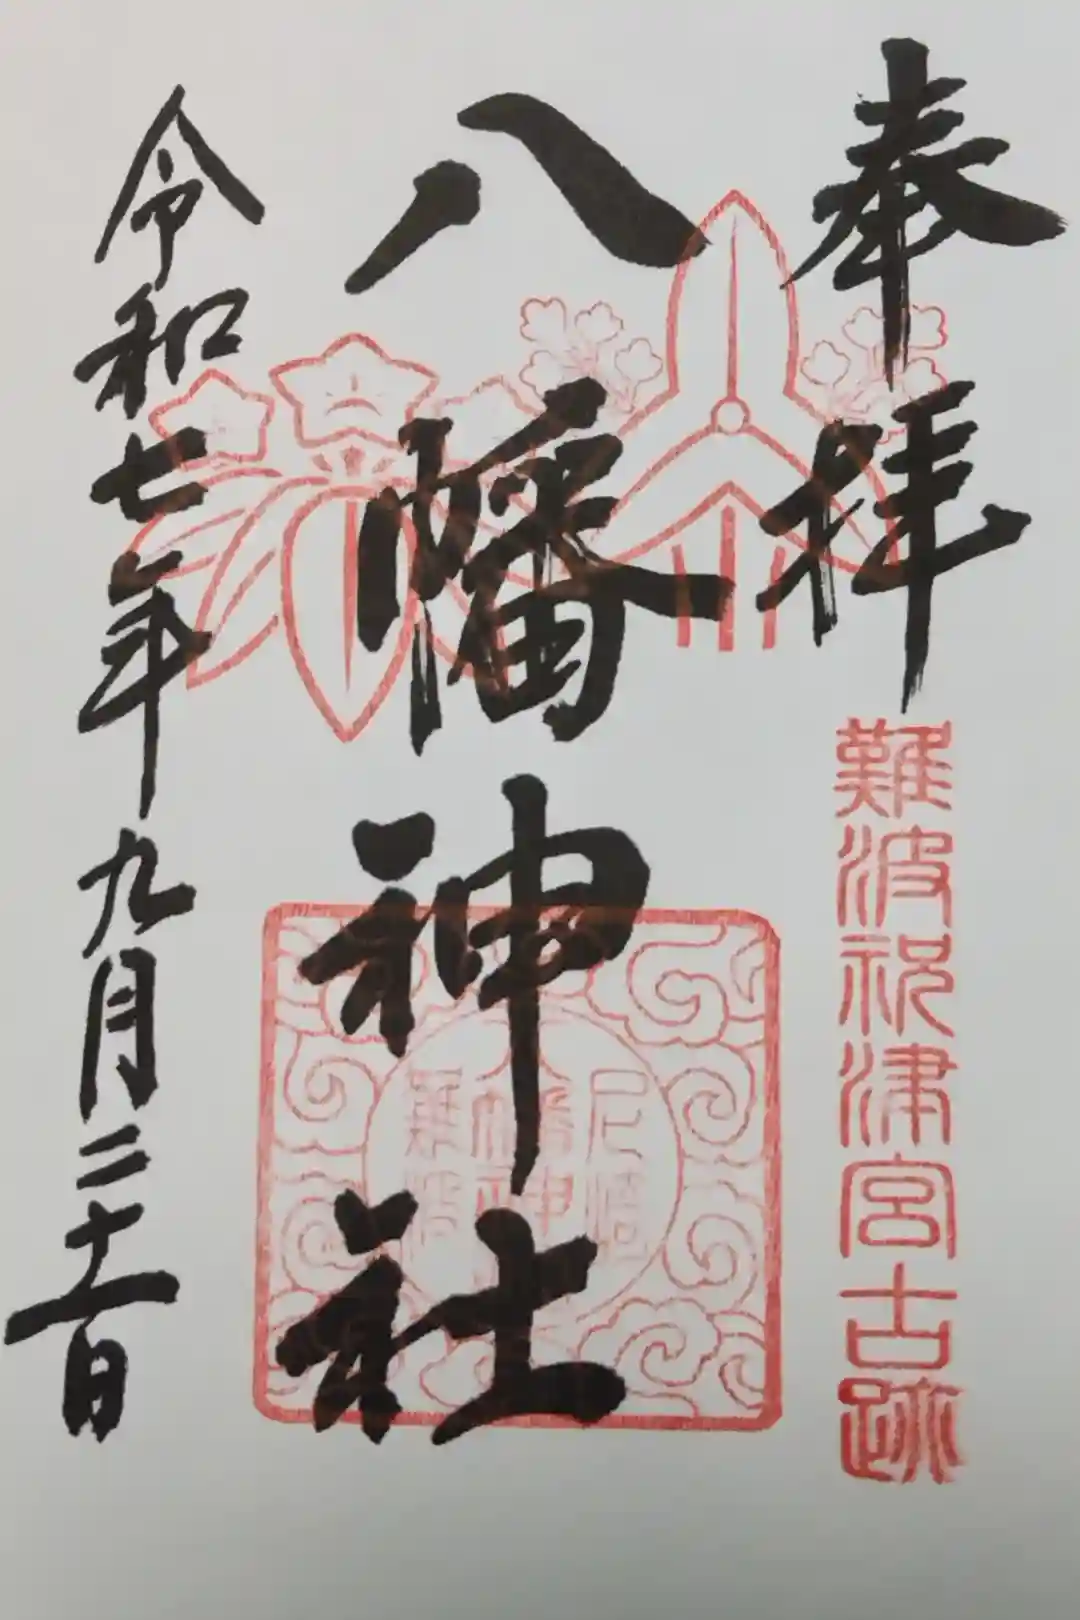 奉拝
難波祝津宮古跡
八幡神社
尼崎
八幡神社
難波
令和七年九月二十一日